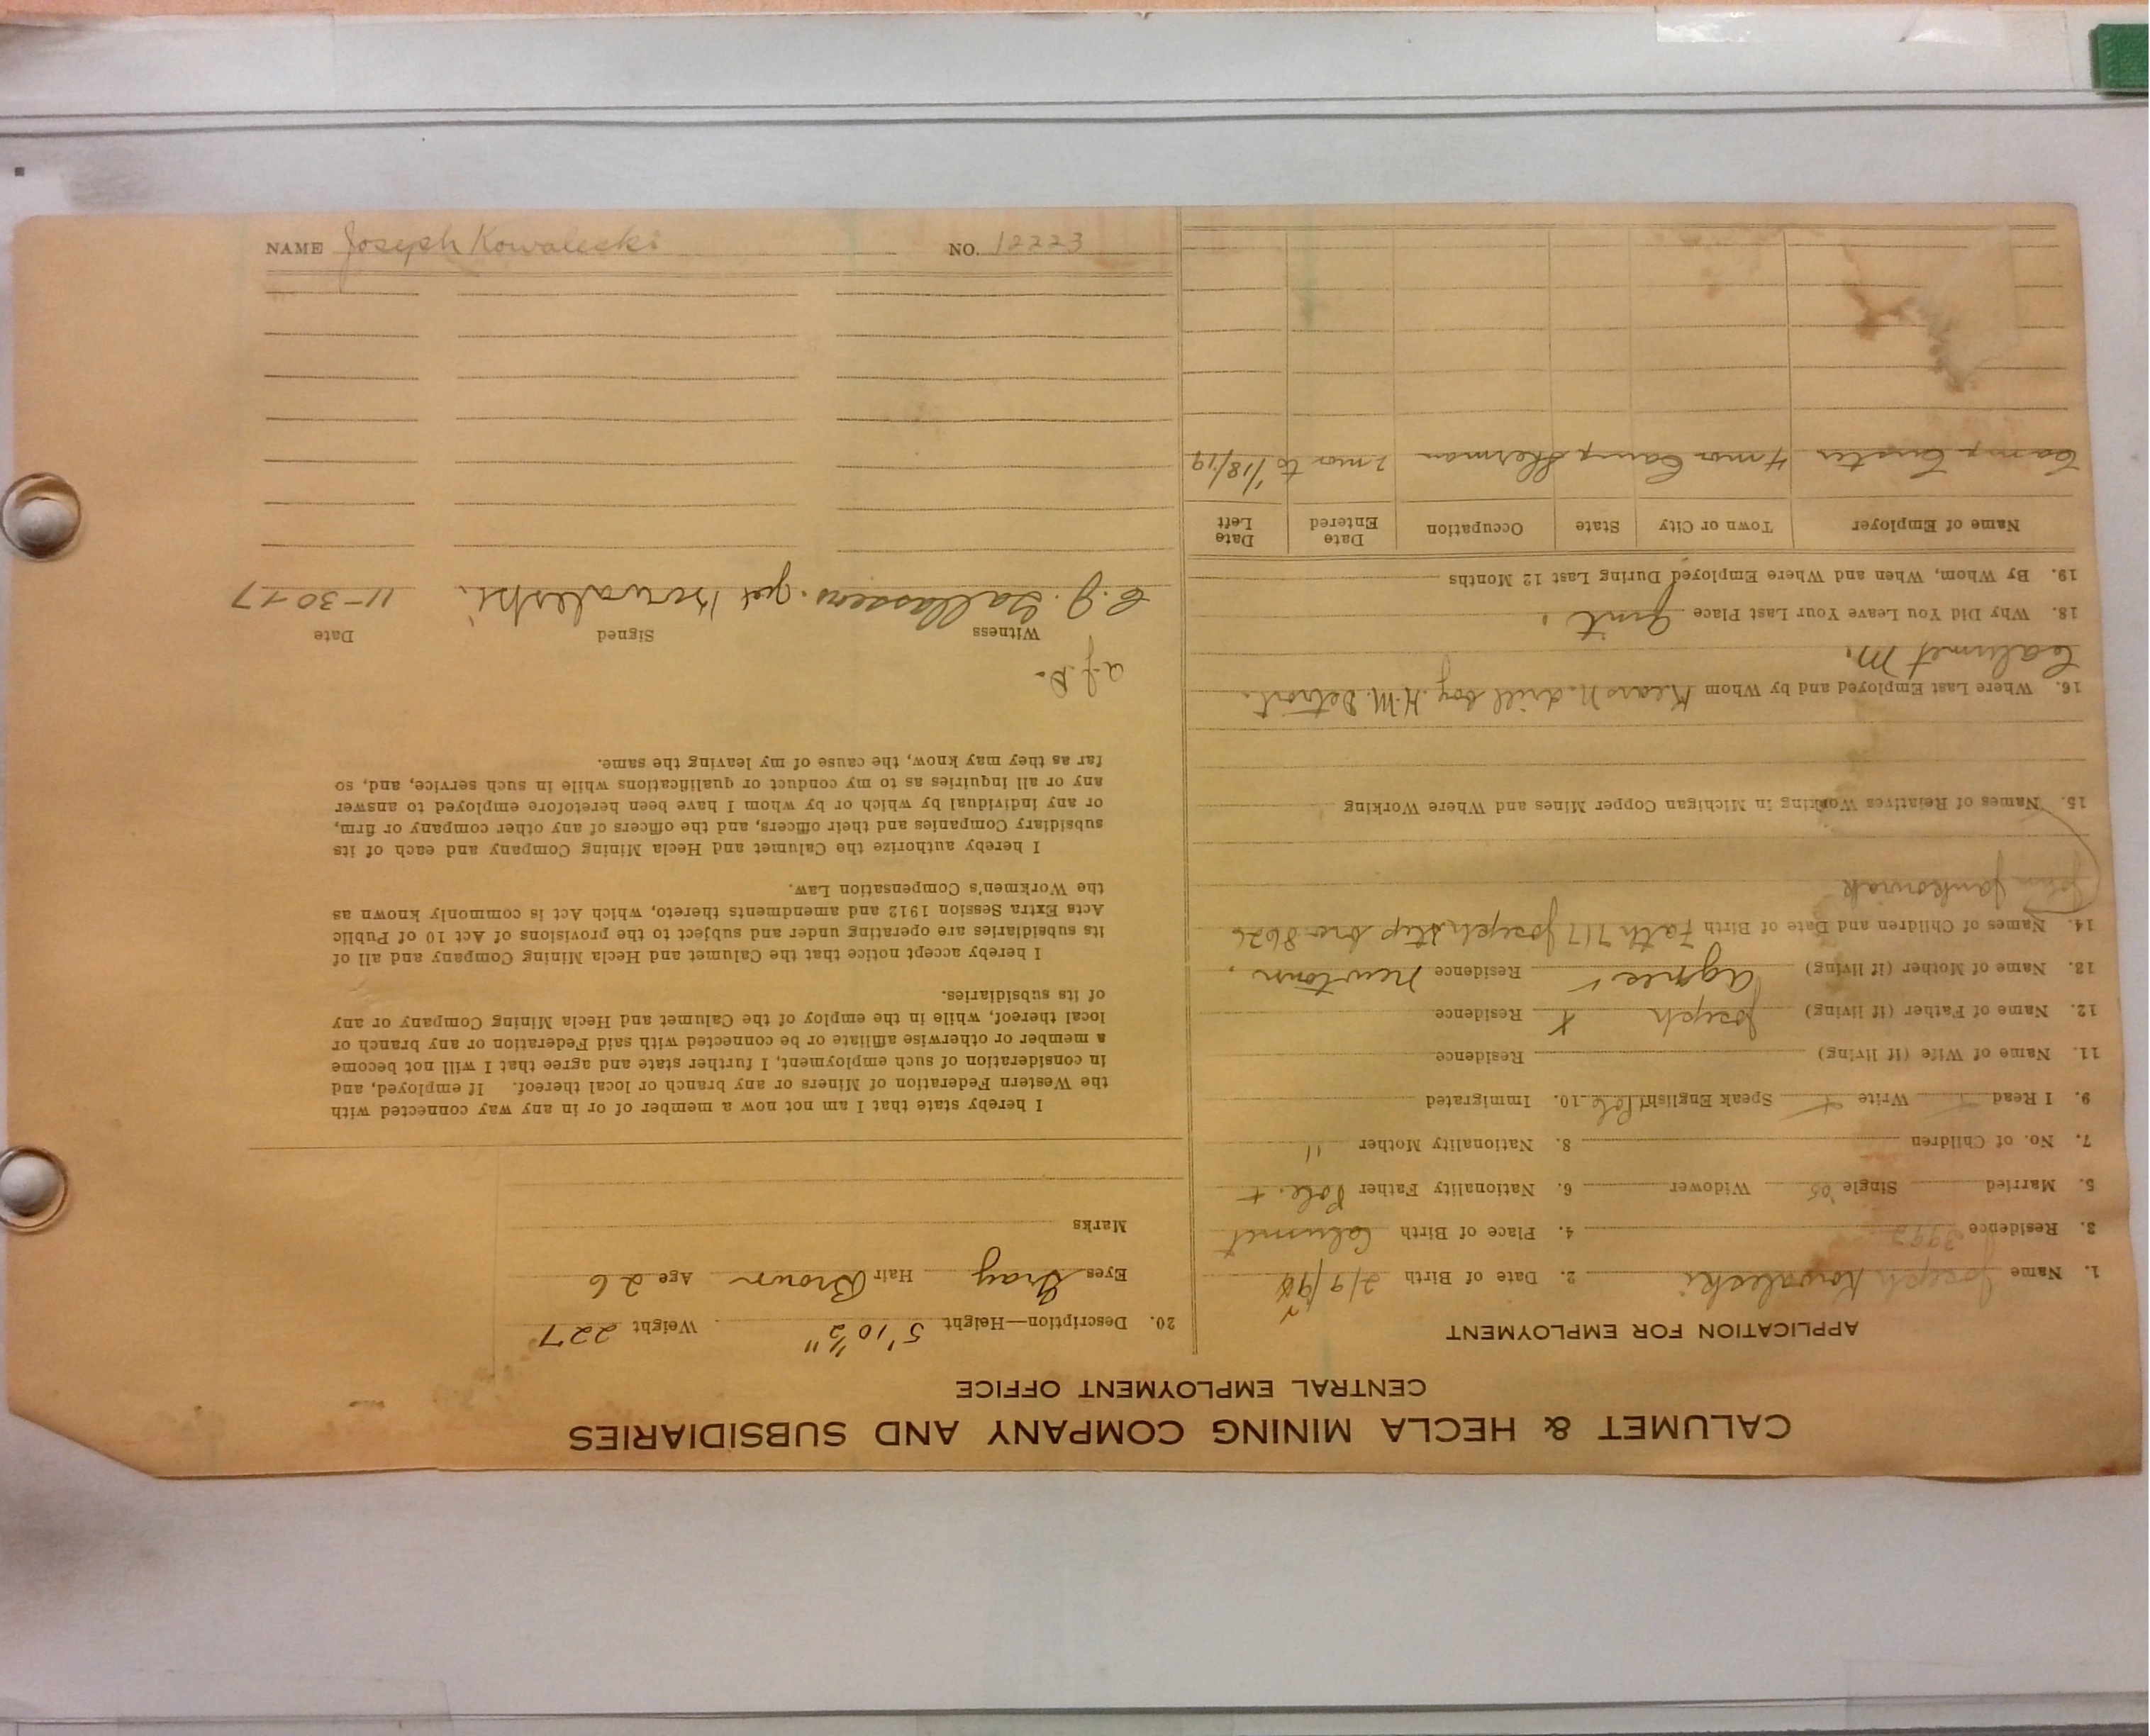 NAME Joseph Kowaleski NO. 12223
CALUMET & HECLA MINING COMPANY AND SUBSIDIARIES
CENTRAL EMPLOYMENT OFFICE
APPLICATION FOR EMPLOYMENT
1. Name Joseph Kowaleski 2. Date of Birth 2/9/
3. Residence 3992 4. Place of Birth Calumet
5. Married Single Widower 6. Nationality Father Pole. +
7. No. of Children 8. Nationality Mother "
9. I Read Write Speak English Pole 10. Immigrated
11. Name of Wife (if living) Residence
12. Name of Father (if living) Joseph X Residence
13. Name of Mother (if living) Agnes Residence Newtown,
14. Names of Children and Date of Birth Fath 717 Joseph Step bro 8626
John Jankowiak
15. Names of Relatives Working in Michigan Copper Mines and Where Working
16. Where Last Employed and by Whom Kears N. drill boy. H.M. Detroit.
Calumet M.
18. Why Did You Leave Your Last Place Quit.
19. By Whom, When and Where Employed During Last 12 Months
Name of Employer Town or City State Occupation Date Entered Date Left
Camp Custer 4 mos Camp Sherman 2 mos to 1/18/19
20. Description—Height 5' 10 1/2" Weight 227
Eyes Gray Hair Brown Age 26
Marks
I hereby state that I am not now a member of or in any way connected with
the Western Federation of Miners or any branch or local thereof. If employed, and
in consideration of such employment, I further state and agree that I will not become
a member or otherwise affiliate or be connected with said Federation or any branch or
local thereof, while in the employ of the Calumet and Hecla Mining Company or any
of its subsidiaries.
I hereby accept notice that the Calumet and Hecla Mining Company and all of
its subsidiaries are operating under and subject to the provisions of Act 10 of Public
Acts Extra Session 1912 and amendments thereto, which Act is commonly known as
the Workmen's Compensation Law.
I hereby authorize the Calumet and Hecla Mining Company and each of its
subsidiary Companies and their officers, and the officers of any other company or firm,
or any individual by which or by whom I have been heretofore employed to answer
any or all inquiries as to my conduct or qualifications while in such service, and, so
far as they may know, the cause of my leaving the same.
Witness Signed Date
Kowaleski 11-30-17